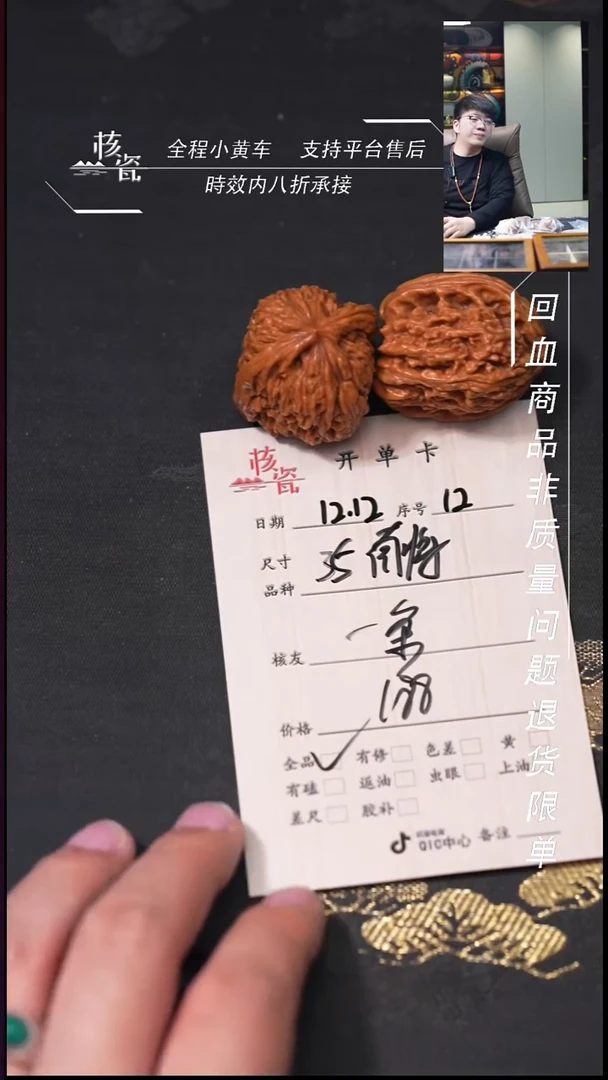 核瓷
全程小黄车 支持平台售后
時效内八折承接
回血商品非质量问题退货限单
核瓷
开单卡
日期 12.12 序号 12
尺寸 35
品种
核友
价格 188
全品 有修 色差 黄
有磕 返油 虫眼 上油
差尺 胶补
QIC中心 备注